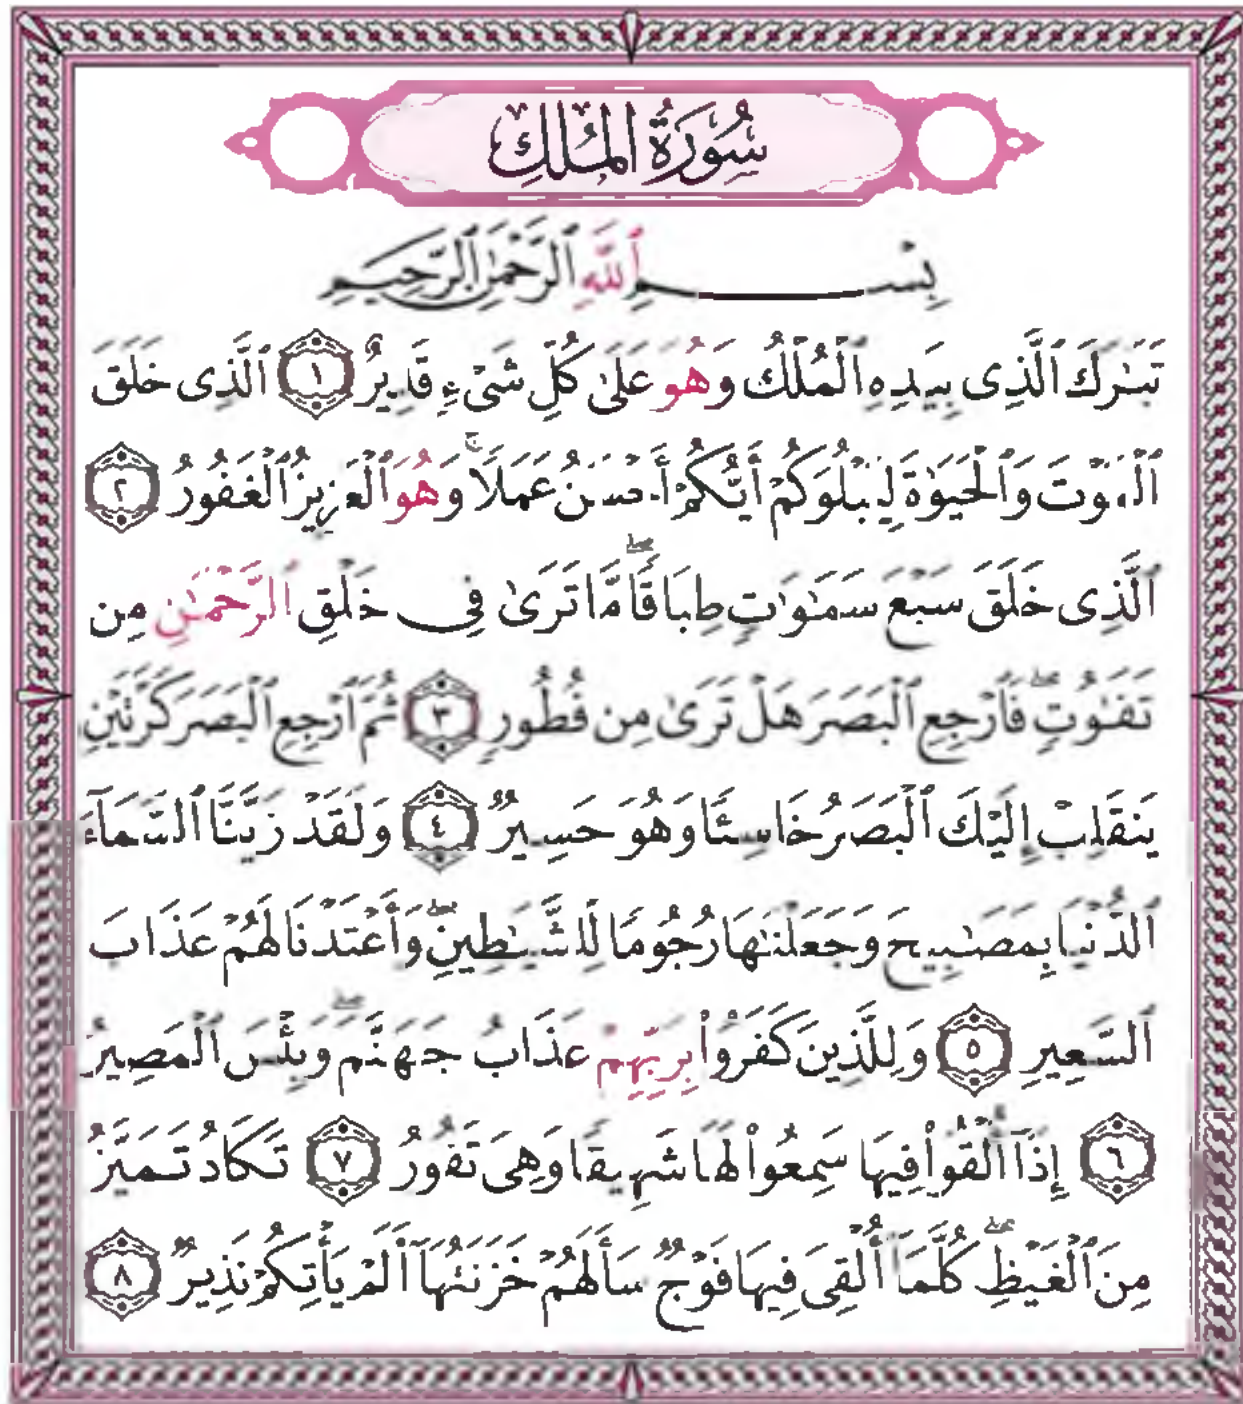 سُورَةُ الْمُلْكِ
بِسْمِ ٱللَّهِ ٱلرَّحْمَٰنِ ٱلرَّحِيمِ
تَبَٰرَكَ ٱلَّذِى بِيَدِهِ ٱلْمُلْكُ وَهُوَ عَلَىٰ كُلِّ شَىْءٍ قَدِيرٌ ١ ٱلَّذِى خَلَقَ
ٱلْمَوْتَ وَٱلْحَيَوٰةَ لِيَبْلُوَكُمْ أَيُّكُمْ أَحْسَنُ عَمَلًا ۚ وَهُوَ ٱلْعَزِيزُ ٱلْغَفُورُ ٢
ٱلَّذِى خَلَقَ سَبْعَ سَمَٰوَٰتٍ طِبَاقًا ۖ مَّا تَرَىٰ فِى خَلْقِ ٱلرَّحْمَٰنِ مِن
تَفَٰوُتٍ ۖ فَٱرْجِعِ ٱلْبَصَرَ هَلْ تَرَىٰ مِن فُطُورٍ ٣ ثُمَّ ٱرْجِعِ ٱلْبَصَرَ كَرَّتَيْنِ
يَنقَلِبْ إِلَيْكَ ٱلْبَصَرُ خَاسِئًا وَهُوَ حَسِيرٌ ٤ وَلَقَدْ زَيَّنَّا ٱلسَّمَآءَ
ٱلدُّنْيَا بِمَصَٰبِيحَ وَجَعَلْنَٰهَا رُجُومًا لِّلشَّيَٰطِينِ ۖ وَأَعْتَدْنَا لَهُمْ عَذَابَ
ٱلسَّعِيرِ ٥ وَلِلَّذِينَ كَفَرُوا۟ بِرَبِّهِمْ عَذَابُ جَهَنَّمَ ۖ وَبِئْسَ ٱلْمَصِيرُ
٦ إِذَآ أُلْقُوا۟ فِيهَا سَمِعُوا۟ لَهَا شَهِيقًا وَهِىَ تَفُورُ ٧ تَكَادُ تَمَيَّزُ
مِنَ ٱلْغَيْظِ ۖ كُلَّمَآ أُلْقِىَ فِيهَا فَوْجٌ سَأَلَهُمْ خَزَنَتُهَآ أَلَمْ يَأْتِكُمْ نَذِيرٌ ٨